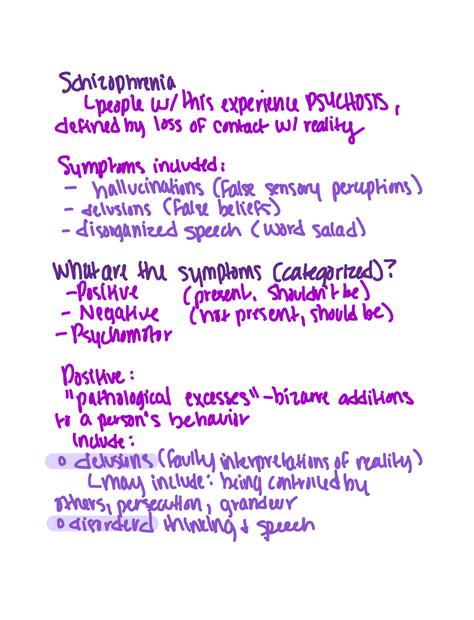 Schizophrenia
↳people w/ this experience PSYCHOSIS,
defined by loss of contact w/ reality
Symptoms included:
- hallucinations (false sensory perceptions)
- delusions (false beliefs)
- disorganized speech (word salad)
What are the symptoms (categorized)?
-Positive (present, shouldn't be)
- Negative (not present, should be)
-Psychomotor
Positive:
"pathological excesses" -bizarre additions
to a person's behavior
Include:
o delusions (faulty interpretations of reality)
↳may include: being controlled by
others, persecution, grandeur
o disorderd thinking & speech